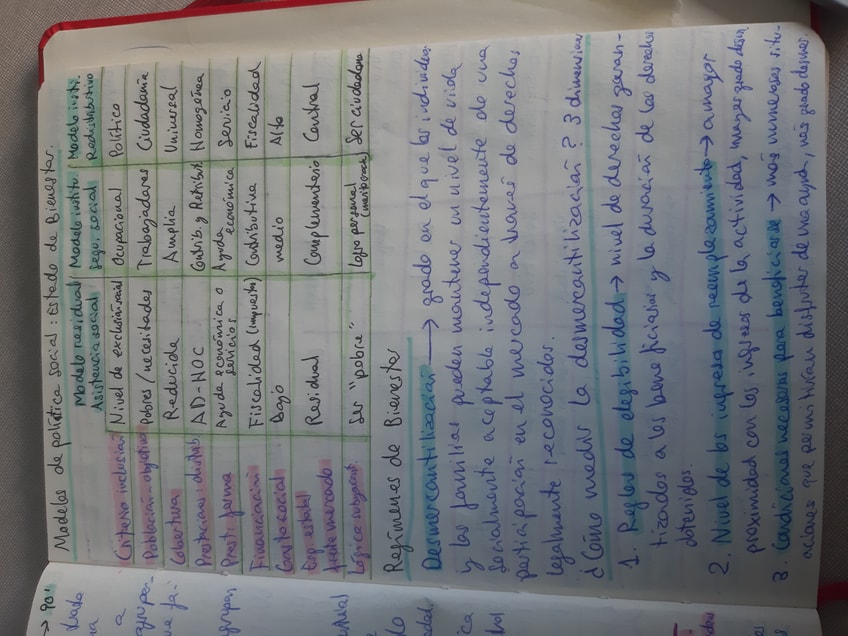 Modelos de política social: Estado de Bienestar.
Modelo residual / Modelo institu. / Modelo insti.
Asistencia social Segu. social Redistributivo
Criterio inclusión Nivel de exclusión social Ocupacional Político
Población-objetivo Pobres/necesitados Trabajadores Ciudadanía
Cobertura Reducida Amplia Universal
Prestacions: distrib AD-HOC Contrib. y Retribut Homogénea
Prest: forma Ayuda económica o servicios Ayuda económica Servicio
Financiación Fiscalidad (impuestos) Contributiva Fiscalidad
Gasto social Bajo medio Alto
Cap. estatal
frente mercado Residual Complementario Central
Lógica subyacent. Ser "pobre" Logro personal (meritocracia) Ser ciudadano
Regímenes de Bienestar
Desmercantilización → grado en el que los individuos
y las familias pueden mantener un nivel de vida
socialmente aceptable independientemente de una
participación en el mercado a través de derechos
legalmente reconocidos.
¿Cómo medir la desmercantilización? 3 dimensiones
1. Reglas de elegibilidad → nivel de derechos garan-
tizados a los beneficiarios y la duración de los derechos
obtenidos.
2. Nivel de los ingresos de reemplazamiento → a mayor
proximidad con los ingresos de la actividad, mayor grado desm.
3. Condiciones necesarias para beneficiarse → más numerosas situ-
aciones que permitirían disfrutar de una ayuda, más grado desmer.
→ 90's